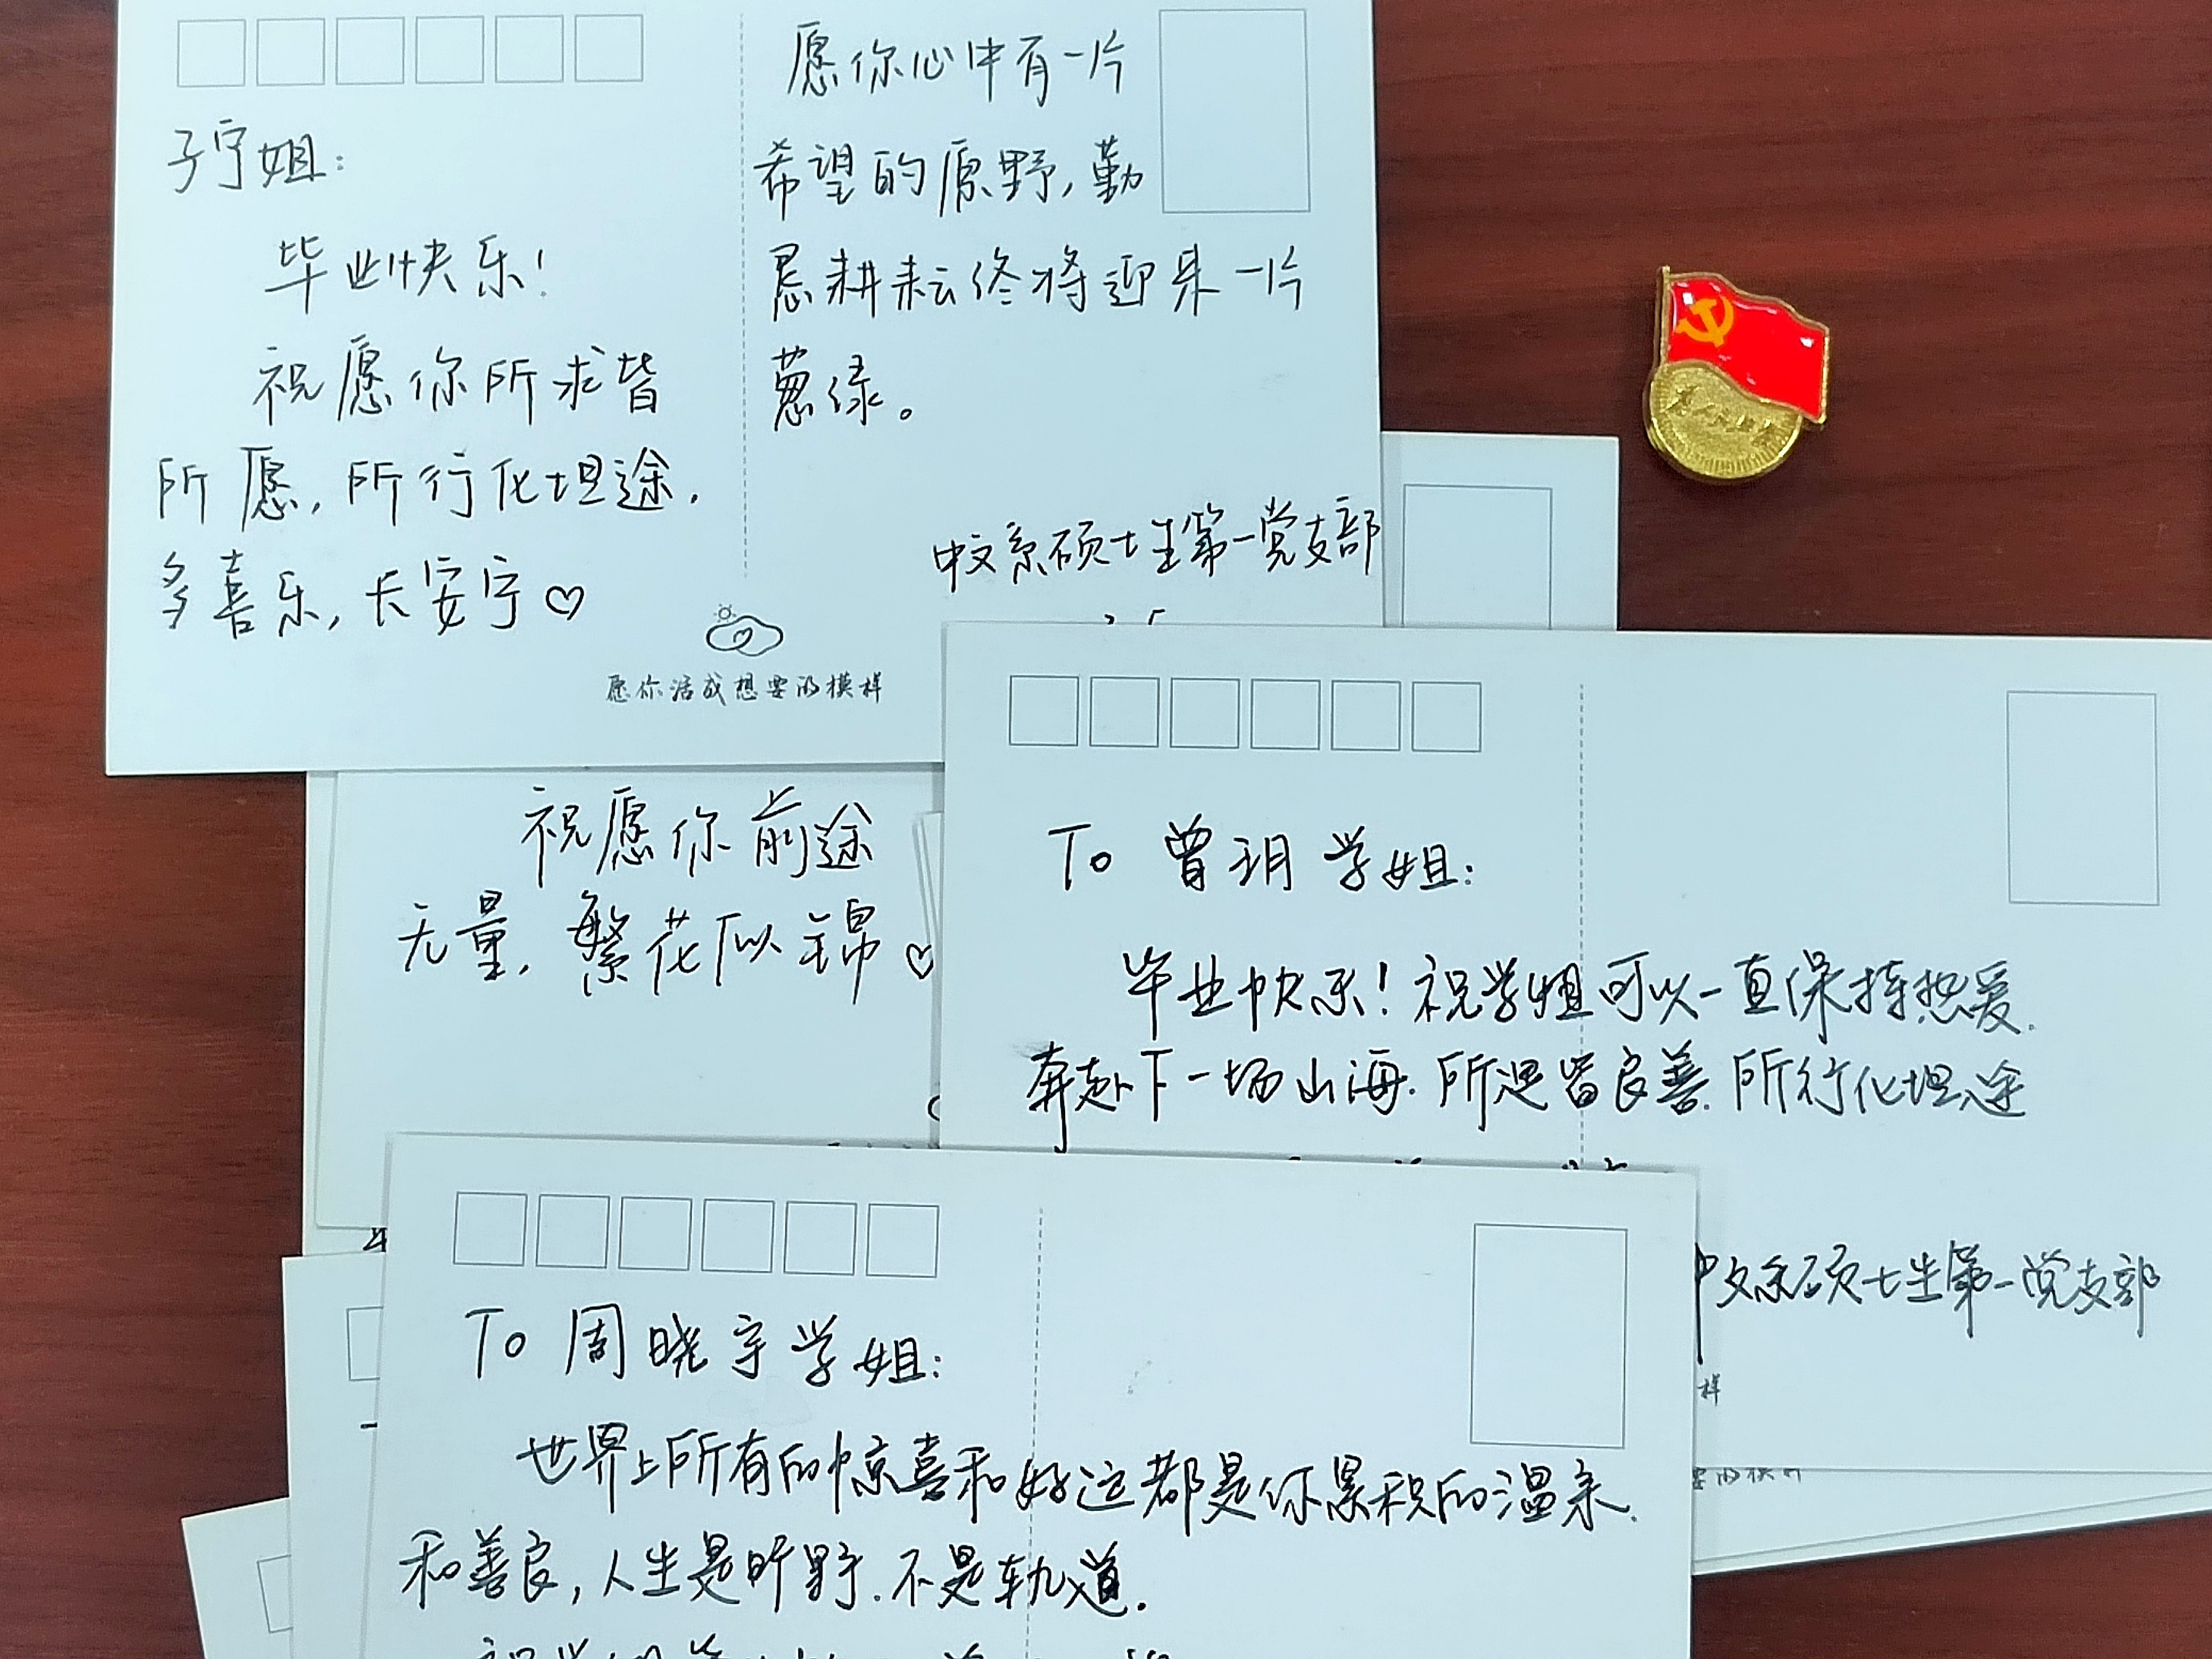 子宁姐：
毕业快乐！
祝愿你所求皆
所愿，所行化坦途，
多喜乐，长安宁♡
愿你心中有一片
希望的原野，勤
恳耕耘终将迎来一片
葱绿。
中文系硕士生第一党支部
愿你活成想要的模样
祝愿你前途
无量，繁花似锦♡
To 曾玥学姐：
毕业快乐！祝学姐可以一直保持热爱，
奔赴下一场山海，所遇皆良善，所行化坦途
中文系硕士生第一党支部
样
To 周晓宇学姐：
世界上所有的惊喜和好运都是你累积的温柔
和善良，人生是旷野，不是轨道。